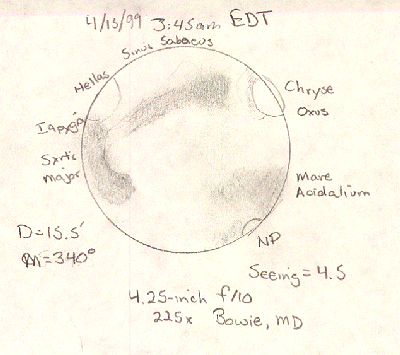 4/15/99 3:45am EDT
Sinus Sabaeus
Hellas
Chryse
Oxus
Iapygia
Syrtis
major
Mare
Acidalium
D=15.5"
m=340°
NP
Seeing = 4.5
4.25-inch f/10
225x Bowie, MD